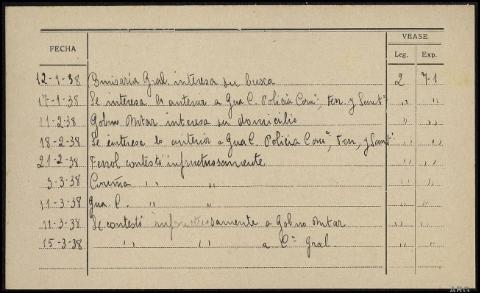 VEASE
FECHA Leg. Exp.
12-1-38 Comisaria Gral. interesa su busca 2 71
17-1-38 Se interesa lo anterior a Gua C. Policia Coruª, Fen. y Santº " "
11-2-38 Gobno Mtar interesa su domicilio " "
18-2-38 Se interesa lo anterior a Gua C. Policia Coruª, Fen, y Santº " "
21-2-38 Ferrol contestó infructuosamente " "
3-3-38 Coruña " " " "
11-3-38 Gua C. " " " "
11-3-38 Se contestó infructuosamente a Gobno Mtar " "
15-3-38 " " a Cª Gral. " "